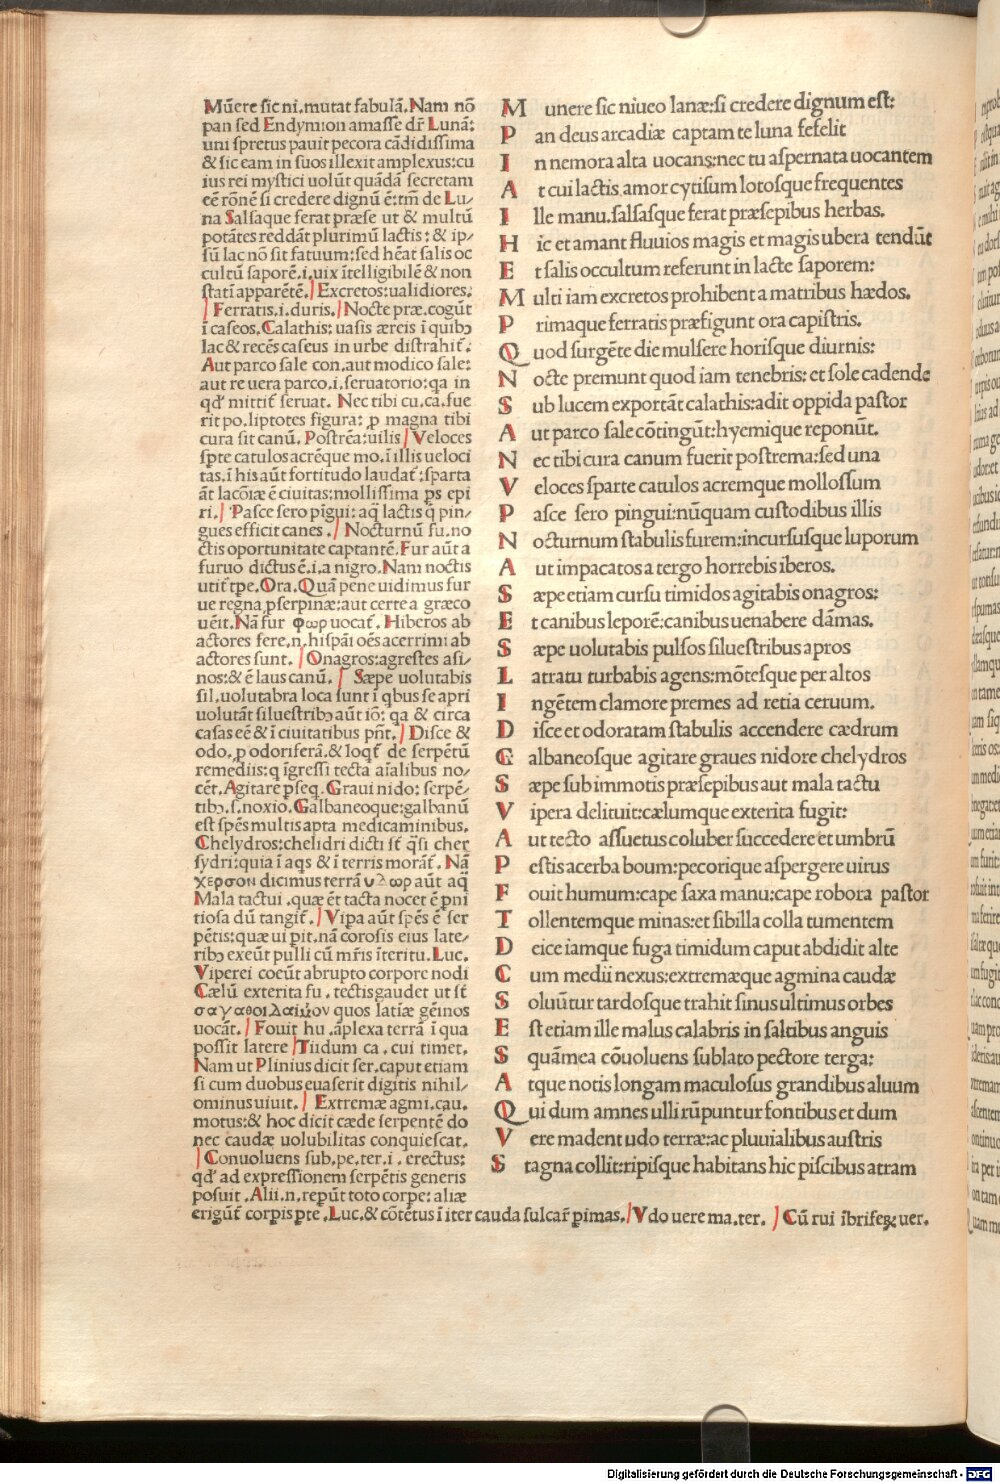 Mūere sic ni.mutat fabulā.Nam nō
pan sed Endymion amasse dr̄ Lunā:
uni spretus pauit pecora cādidissima
& sic eam in suos illexit amplexus:cu
ius rei mystici uolūt quādā secretam
eē rōnē si credere dignū ē:tm̄ de Lu/
na Salsaque ferat præse ut & multū
potātes reddāt plurimū lactis: & ip/
sū lac nō sit fatuum:sed hēat salis oc
cultū saporē.i.uix ītelligibilē & non
statī apparētē. Excretos:ualidiores.
Ferratis.i.duris. Nocte præ.cogūt
ī caseos.Calathis: uasis æreis ī quibꝫ
lac & recēs caseus in urbe distrahit̄.
Aut parco sale con.aut modico sale:
aut re uera parco.i.seruatorio:qa in
qd̄ mittit̄ seruat. Nec tibi cu.ca.fue
rit po.liptotes figura: ꝑ magna tibi
cura sit canū. Postrēa:uilis Veloces
spte catulos acrēque mo.ī illis ueloci
tas.ī his aūt fortitudo laudat̄:sparta
āt lacōiæ ē ciuitas:mollissima ps epi
ri. Pasce sero pīgui: aq̄ lactis q̄ pin/
gues efficit canes. Nocturnū fu.no
ctis oportunitate captantē.Fur aūt a
furuo dictus ē.i.a nigro.Nam noctis
utit̄ tꝑe.Ora.Quā pene uidimus fur
ue regna ꝓserpinæ:aut certe a græco
uēit.Nā fur φωρ uocat̄. Hiberos ab
actores fere.n.hispāi oēs acerrimi ab
actores sunt. Onagros:agrestes asi/
nos:& ē laus canū. Sæpe uolutabis
sil.uolutabra loca sunt ī qbus se apri
uolutāt siluestribꝫ aūt iō: qa & circa
casas eē & ī ciuitatibus pn̄t. Disce &
odo.ꝓ odoriferā.& loqt̄ de serpētū
remediis:q īgressi tecta aīalibus no/
cēt.Agitare ꝑseq.Graui nido: serpē/
tibꝫ.s.noxio.Galbaneoque:galbanū
est spēs multis apta medicaminibus.
Chelydros:chelidri dicti st̄ q̄si cher
sydri:quia ī aqs & ī terris morāt̄. Nā
χερσον dicimus terrā υλωρ aūt aq̄
Mala tactui .quæ ēt tacta nocet ē pni
tiosa dū tangit̄. Vipa aūt spēs ē ser
pētis:quæ ui pit.nā corosis eius late/
ribꝫ exeūt pulli cū mr̄is īteritu.Luc.
Viperei coeūt abrupto corpore nodi
Cælū exterita fu. tectisgaudet ut st̄
σαγαθοιλαιμον quos latiæ gēinos
uocāt. Fouit hu.āplexa terrā ī qua
possit latere Tiidum ca. cui timet.
Nam ut Plinius dicit ser.caput etiam
si cum duobus euaserit digitis nihil/
ominus uiuit. Extremæ agmi.cau.
motus:& hoc dicit cæde serpentē do
nec caudæ uolubilitas conquiescat.
Conuoluens sub.pe.ter.i. erectus:
qd̄ ad expressionem serpētis generis
posuit .Alii.n.repūt toto corpe: aliæ
erigūt̄ corpis pte .Luc.& cōtētus ī iter cauda sulcar̄ pimas. Vdo uere ma.ter. Cū rui ībriferꝫ uer.
Munere sic niueo lanæ:si credere dignum est:
Pan deus arcadiæ captam te luna fefelit
In nemora alta uocans:nec tu aspernata uocantem
At cui lactis amor cytisum lotosque frequentes
Ille manu.salsasque ferat præsepibus herbas.
Hic et amant fluuios magis et magis ubera tendūt
Et salis occultum referunt in lacte saporem:
Multi iam excretos prohibent a matribus hædos.
Primaque ferratis præfigunt ora capistris.
Quod surgēte die mulsere horisque diurnis:
Nocte premunt quod iam tenebris: et sole cadende
Sub lucem exportāt calathis:adit oppida pastor
Aut parco sale cōtingūt:hyemique reponūt.
Nec tibi cura canum fuerit postrema:sed una
Veloces sparte catulos acremque molossum
Pasce sero pingui:nūquam custodibus illis
Nocturnum stabulis furem:incursusque luporum
Aut impacatos a tergo horrebis iberos.
Sæpe etiam cursu timidos agitabis onagros:
Et canibus leporē:canibus uenabere dāmas.
Sæpe uolutabis pulsos siluestribus apros
Latratu turbabis agens:mōtesque per altos
Ingētem clamore premes ad retia ceruum.
Disce et odoratam stabulis accendere cædrum
Galbaneosque agitare graues nidore chelydros
Sæpe sub immotis præsepibus aut mala tactu
Vipera delituit:cælumque exterita fugit:
Aut tecto assuetus coluber succedere et umbrū
Pestis acerba boum:pecorique aspergere uirus
Fouit humum:cape saxa manu:cape robora pastor
Tollentemque minas:et sibilla colla tumentem
Deice iamque fuga timidum caput abdidit alte
Cum medii nexus:extremæque agmina caudæ
Soluūtur tardosque trahit sinus ultimus orbes
Est etiam ille malus calabris in saltibus anguis
Squāmea cōuoluens sublato pectore terga:
Atque notis longam maculosus grandibus aluum
Qui dum amnes ulli rūpuntur fontibus et dum
Vere madent udo terræ:ac pluuialibus austris
Stagna collit:ripisque habitans hic piscibus atram
Digitalisierung gefördert durch die Deutsche Forschungsgemeinschaft - DFG